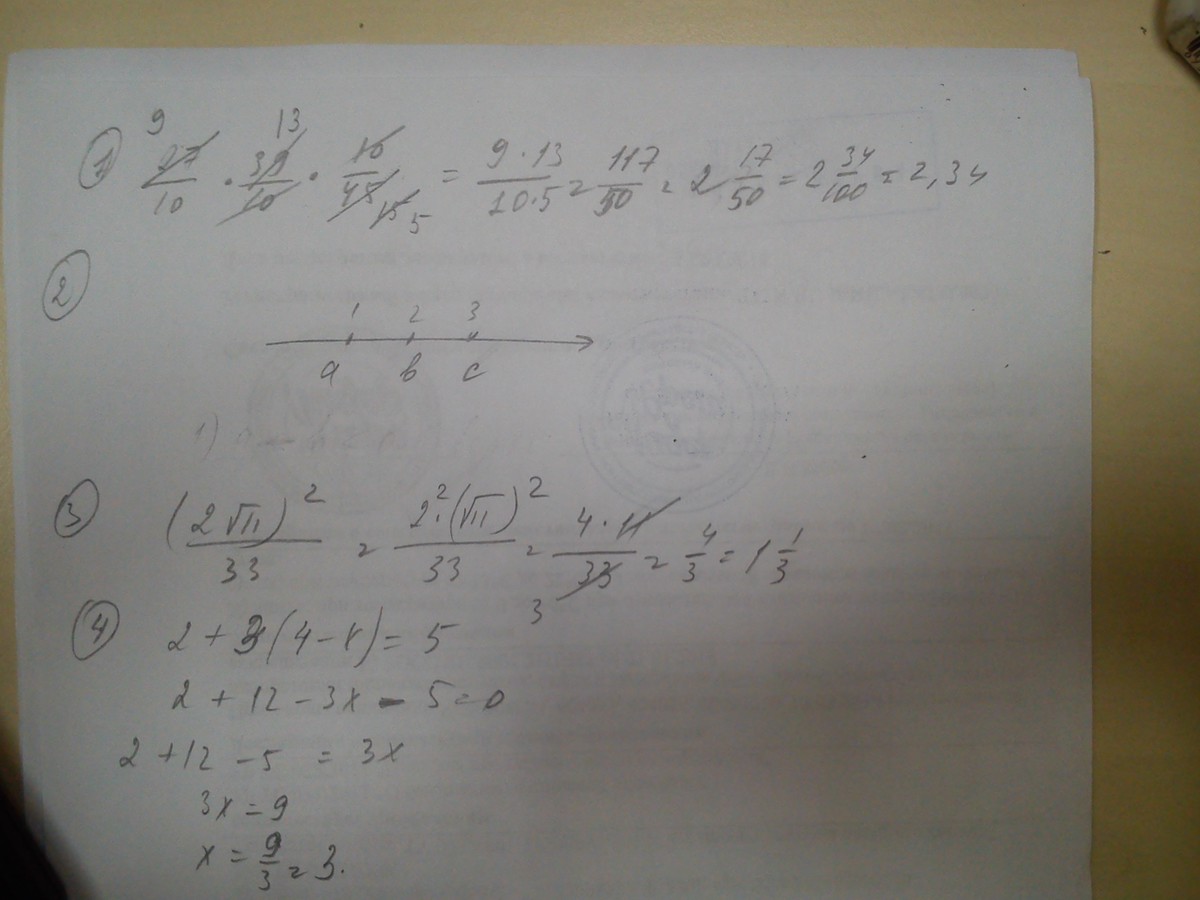 9 13
① 27/10 · 39/10 · 10/45 15 5 = 9·13/10·5 = 117/50 = 2 17/50 = 2 34/100 = 2,34
②
1 2 3
a b c
1)
③ (2√11)²/33 = 2²·(√11)²/33 = 4·11/33 = 4/3 = 1 1/3
3
④ 2 + 3(4-x) = 5
2 + 12 - 3x - 5 = 0
2 + 12 - 5 = 3x
3x = 9
x = 9/3 = 3.